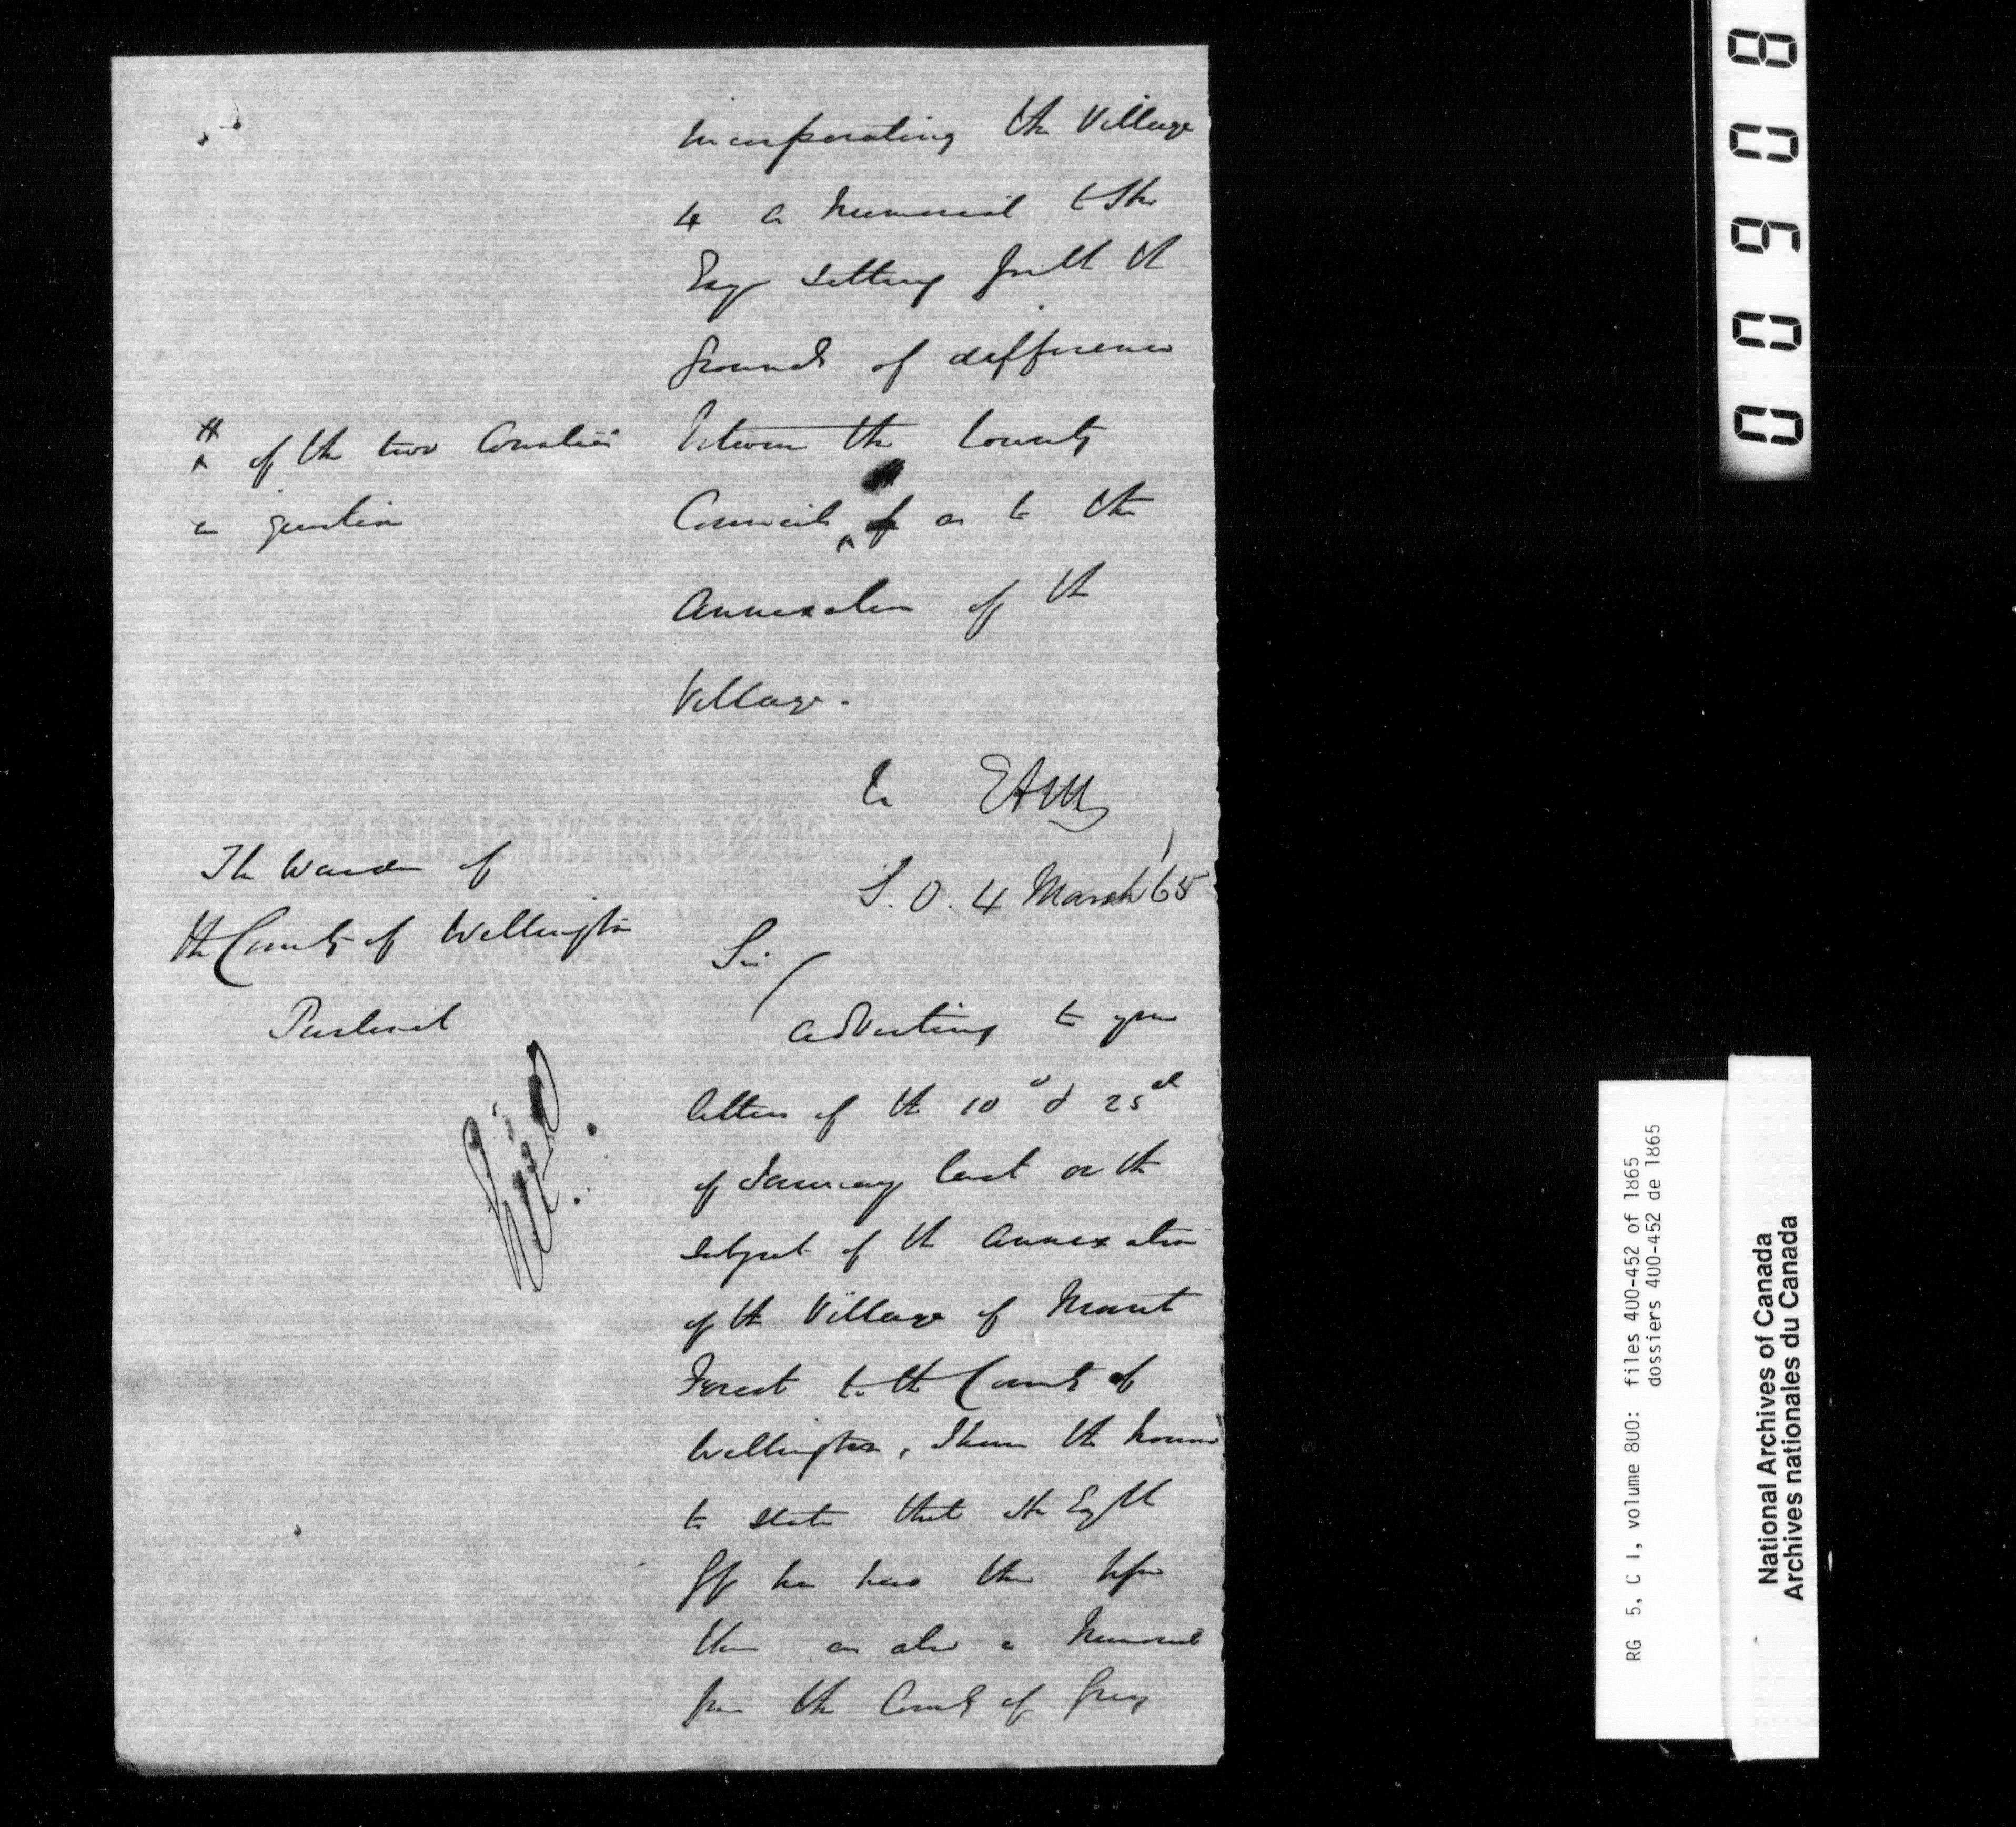 incorporating the Village
& a Memorial to the
Exy setting forth th
grounds of difference
between the County
Councils ^ of as to the
# ^ of the two Counties
in question
annexation of th
Village.
S. O. 4 March '65
The Warden of
th County of Wellington
Sir
adverting to your
letters of th 10th & 25th
of January last on th
subject of th annexation
of th Village of Mount
Forest to th County of
Wellington, I have th honor
to state that the Exy th
has them before
them as also a Memorial
from the County of Grey
00908
RG 5, C 1, volume 800: files 400-452 of 1865
dossiers 400-452 de 1865
National Archives of Canada
Archives nationales du Canada